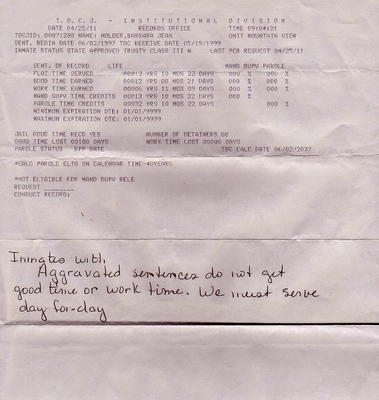 T.D.C.J. - INSTITUTIONAL DIVISION
DATE 04/25/11 RECORDS OFFICE TIME 09:04:21
TDCJID: 00871288 NAME: HOLDER,BARBARA JEAN UNIT MOUNTAIN VIEW
SENT. BEGIN DATE 06/02/1997 TDC RECEIVE DATE 05/19/1999
INMATE STATUS STATE APPROVED TRUSTY CLASS III N LAST PCR REQUEST 04/25/11
SENT. OF RECORD LIFE MAND SUPV PAROLE
FLAT TIME SERVED 00013 YRS 10 MOS 22 DAYS 000 % 000 %
GOOD TIME EARNED 00012 YRS 00 MOS 21 DAYS 000 % %
WORK TIME EARNED 00006 YRS 11 MOS 09 DAYS 000 % 000 %
MAND SUPV TIME CREDITS 00013 YRS 10 MOS 22 DAYS %
PAROLE TIME CREDITS 00032 YRS 10 MOS 22 DAYS 000 %
MINIMUM EXPIRATION DTE: 01/01/9999
MAXIMUM EXPIRATION DTE: 01/01/9999
JAIL GOOD TIME RECD YES NUMBER OF DETAINERS 00
GOOD TIME LOST 00180 DAYS WORK TIME LOST 00000 DAYS
PAROLE STATUS BPP DATE TDC CALC DATE 06/02/2037
*CALC PAROLE ELIG ON CALENDAR TIME-40YEARS
*NOT ELIGIBLE FOR MAND SUPV RELE
REQUEST ________
CONDUCT RECORD:
Inmates with
Aggravated sentences do not get
good time or work time. We must serve
day-for-day